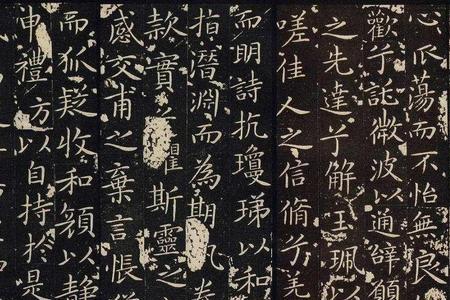 心蕩而不怡無良
歡兮託微波以通辭願
之先達兮解玉珮以
嗟佳人之信脩兮羌
而明詩抗瓊珶以和
指潛淵而為期
款實兮懼斯靈之
感交甫之棄言悵
而狐疑收和顏以靜
申禮方以自持於是